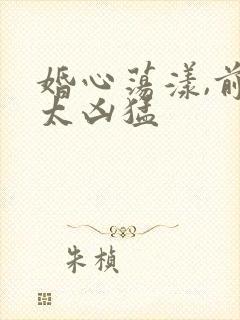 婚心荡漾,前
太凶猛
朱桢